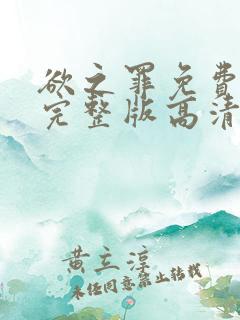 欲之罪免費
完整版高清
黃立淳
未经同意禁止转载